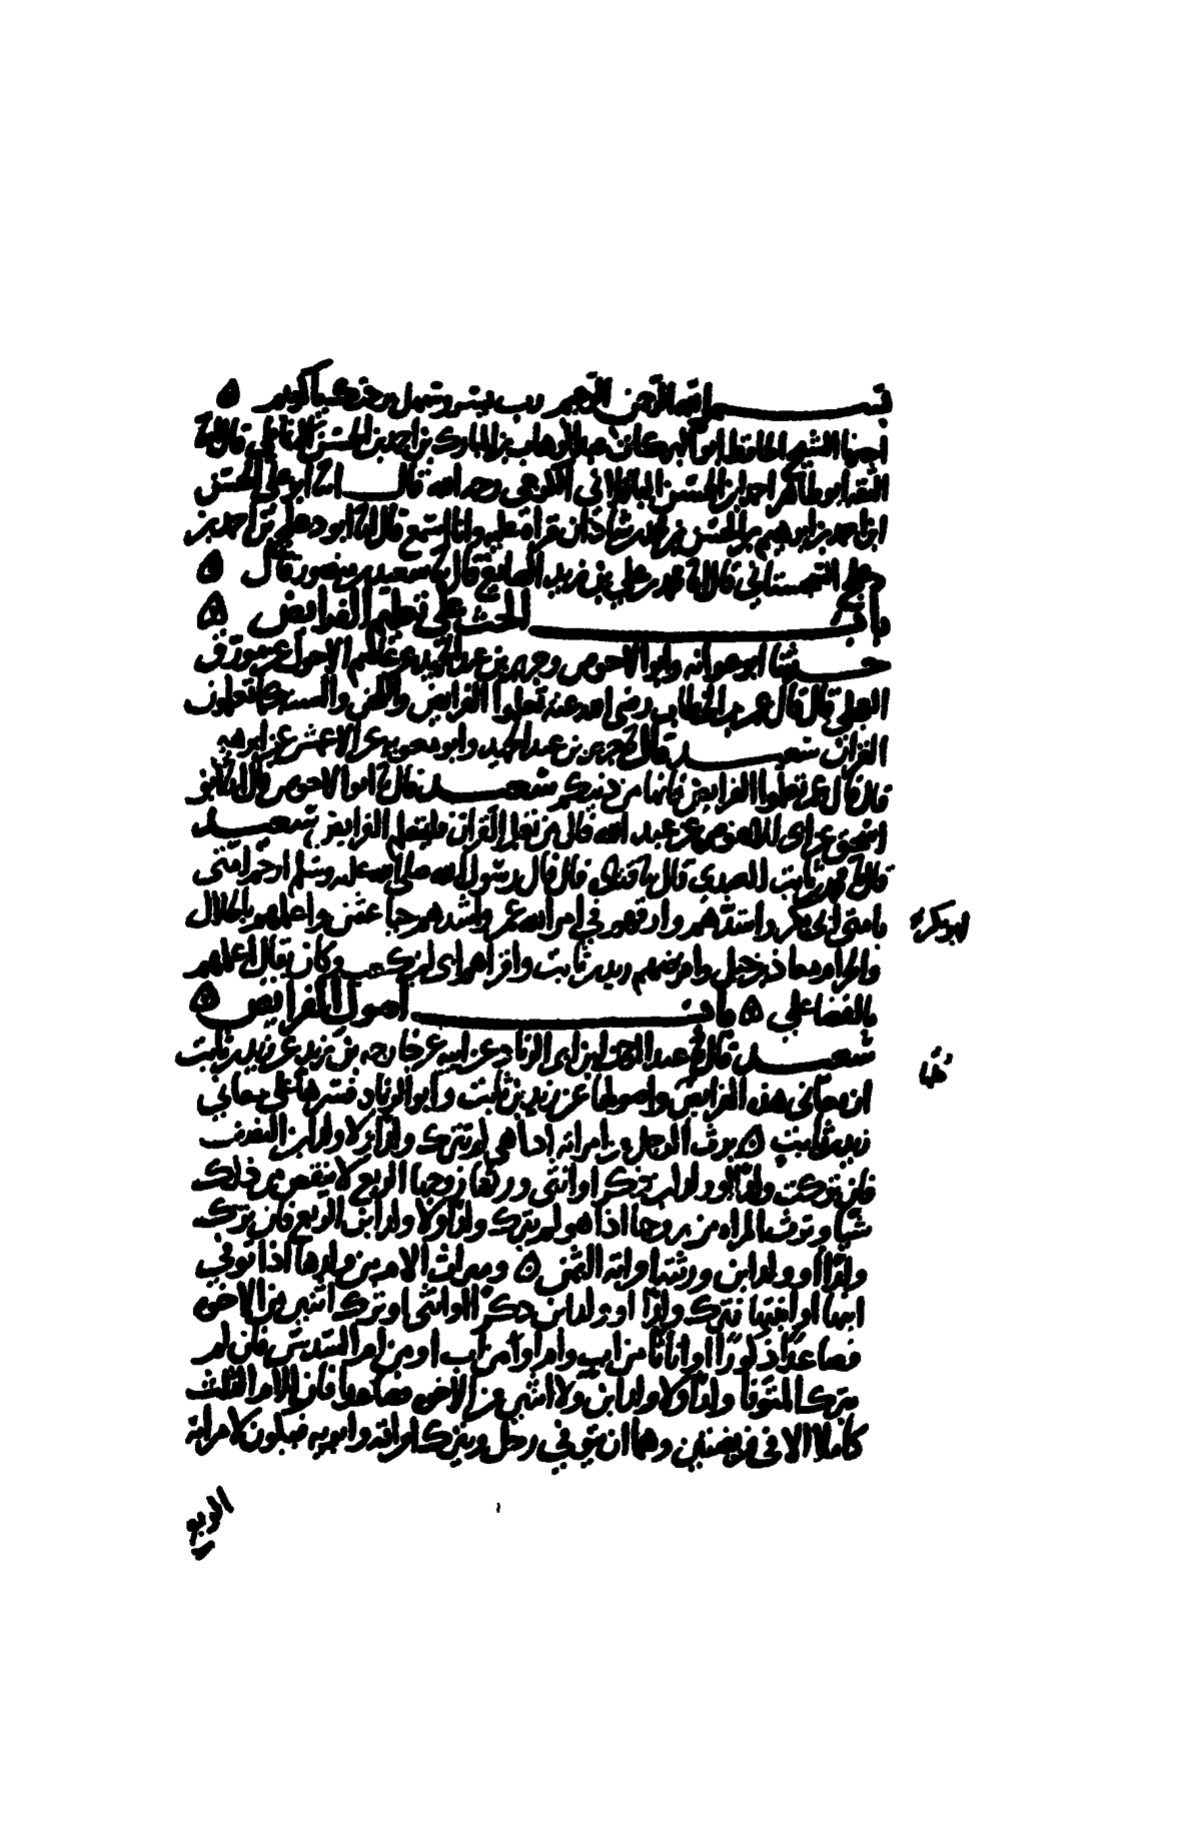 بسم الله الرحمن الرحيم رب يسر وسهل برحمتك يا كريم ه
اخبرنا الشيخ الحافظ ابو البركات عبد الوهاب بن المبارك بن احمد بن الحسن الانماطي قال انا
الثقه ابو طاهر احمد بن الحسن الباقلاني الكرجي رحمه الله قال انا ابو علي الحسن
ابن احمد بن ابرهيم بن الحسن بن محمد بن شاذان قراة عليه وانا اسمع قال انا ابو محمد دعلج بن احمد بن
دعلج السجستاني قال انا محمد بن علي بن زيد الصايغ قال نا سعيد بن منصور قال ه
باب الحث على تعليم الفرايض ه
حدثنا ابو عوانه وابو الاحوص وجرير بن عبد الحميد عن عاصم الاحول عن مورق
العجلي قال قال عمر بن الخطاب رضي الله عنه تعلموا الفرايض واللحن والسنه كما تعلمون
القران سعيد قال نا جرير بن عبد الحميد وابو معويه عن الاعمش عن ابرهيم
قال قال عمر تعلموا الفرايض فانها من دينكم سعيد قال نا ابو الاحوص قال انا ابو
اسحق عن ابي الاحوص عن عبد الله قال من تعلم القران فليتعلم الفرايض سعيد
قال نا محمد بن ثابت العبدي قال نا قتادة قال قال رسول الله صلى الله عليه وسلم ارحم امتي
بامتي ابي بكر واشدهم وارقهم في امر الله عمر واشدهم حيا عثمن واعلمهم بالحلال
والحرام معاذ بن جبل وافرضهم زيد بن ثابت واقراهم ابي بن كعب وكان يقال اعلمهم
بالقضا علي ه باب اصول الفرايض ه
سعيد قال نا عبد الرحمن بن ابي الزناد عن ابيه عن خارجه بن زيد عن زيد بن ثابت
ان معاني هذه الفرايض واصولها عن زيد بن ثابت وابو الزناد فسرها على معاني
زيد بن ثابت ه يرث الرجل من امراته اذا هي لم تترك ولدا ولا ولد ابن النصف
فان تركت ولدا او ولد ابن ذكرا او انثى ورثها زوجها الربع لا ينقص من ذلك
شيا وترث المراه من زوجها اذا هو لم يترك ولدا ولا ولد ابن الربع فان ترك
ولدا او ولد ابن ورثته امراته الثمن ه وميراث الام من ولدها اذا توفي
ابنها او ابنتها فترك ولدا او ولد ابن ذكرا او انثى او ترك اثنين من الاخوه
فصاعدا ذكورا او اناثا من اب وام او من اب او من ام السدس فان لم
يترك المتوفا ولدا ولا ولد ابن ولا اثنين من الاخوه فصاعدا فان للام الثلث
كاملا الا في فريضتين وهما ان يتوفي رجل ويترك امراته وابويه فيكون لامراته
الربع
ابو بكر